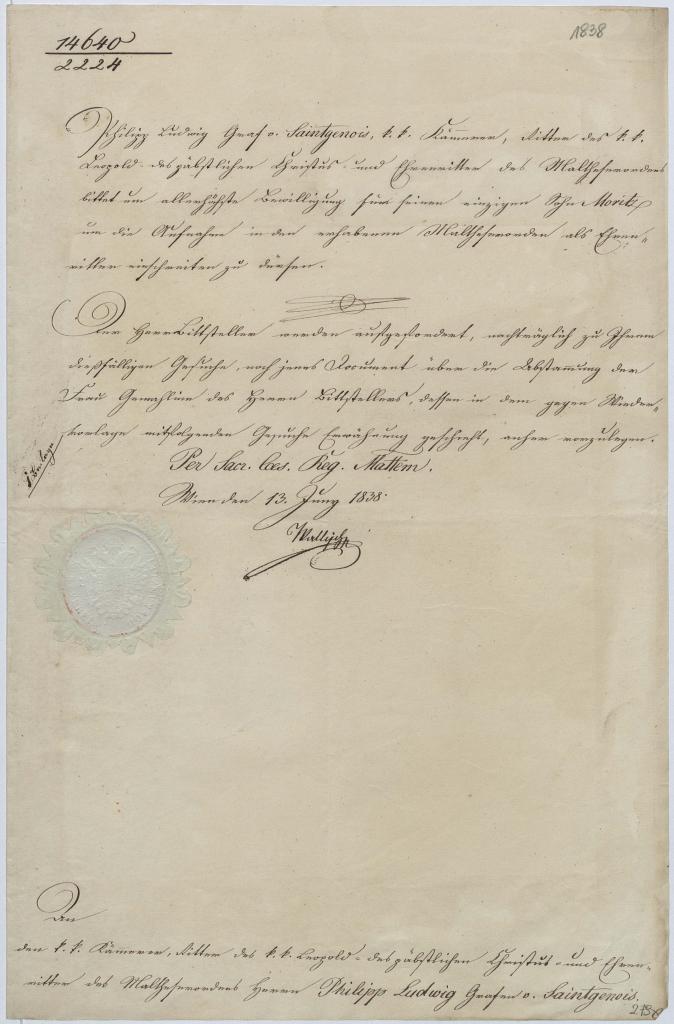 1838
14640
2224
Philipp Ludwig Graf v. Saintgenois, k. k. Kämerer, Ritter des k. k.
Leopold- des päbstlichen Christus- und Ehrenritter des Maltheserordens
bittet um allerhöchste Bewilligung für seinen einzigen Sohn Moritz
um die Aufnahme in den erhabenen Maltheserorden als Ehren-
ritter einschreiten zu dürfen.
Der Herr Bittsteller werden aufgefordert, nachträglich zu Ihrem
dießfälligen Gesuche, noch jenes Document über die Abstammung der
Frau Gemahlinn des Herrn Bittstellers, dessen in dem gegen Wieder-
vorlage mitfolgenden Gesuche Erwähnung geschieht, anher vorzulegen.
Per Sacr. Caes. Reg. Mattem.
Wien den 13. Juny 1838.
An
den k. k. Kämerer, Ritter des k. k. Leopold- des päbstlichen Christus- und Ehren-
ritter des Maltheserordens Herrn Philipp Ludwig Grafen v. Saintgenois.